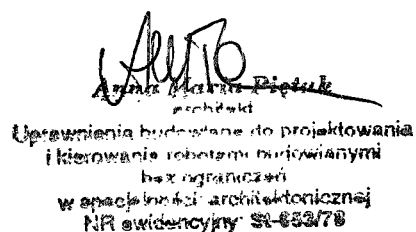 Anna Maria Piętak
architekt
Uprawnienia budowlane do projektowania
i kierowania robotami budowlanymi
bez ograniczeń
w specjalności architektonicznej
NR ewidencyjny St-653/78